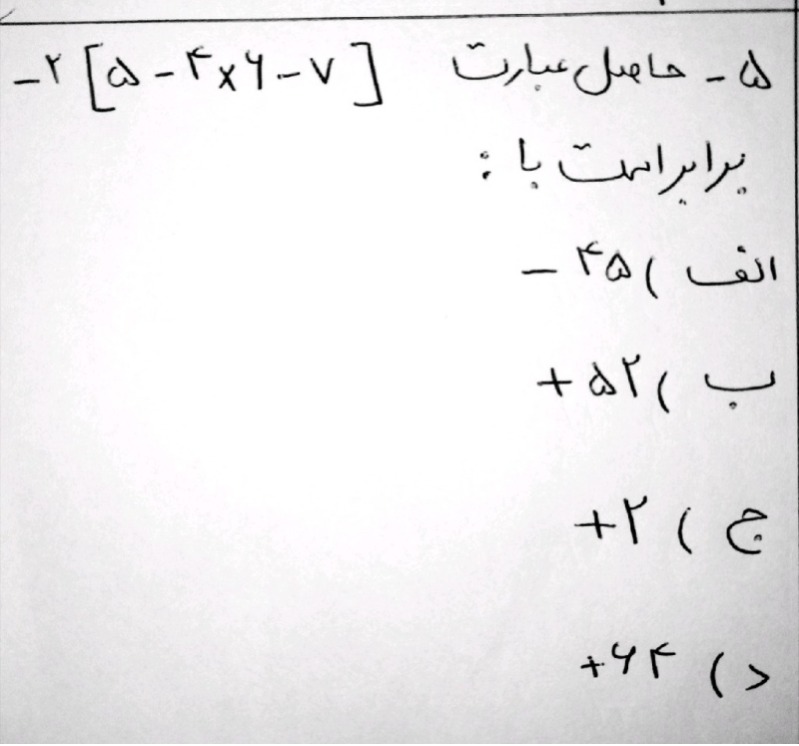 ۵- حاصل عبارت -۲[۵-۴×۶-۷]
برابر است با :
الف) ۴۵ -
ب) ۵۲ +
ج) ۲+
د) ۶۴+